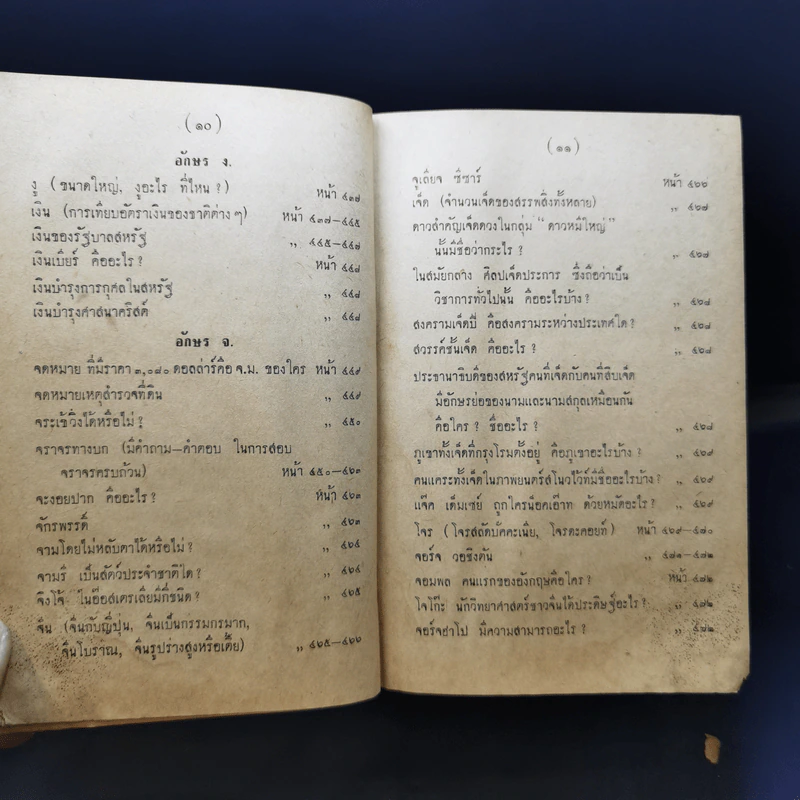 (๑๐)
อักษร ง.
งู (ขนาดใหญ่, งูอะไร ที่ไหน ?) หน้า ๔๓๗
เงิน (การเทียบอัตราเงินของชาติต่าง ๆ) หน้า ๔๓๗—๔๔๕
เงินของรัฐบาลสหรัฐ ,, ๔๔๕—๔๔๗
เงินเบี้ยร์ คืออะไร ? หน้า ๔๔๗
เงินบำรุงการกุศลในสหรัฐ ,, ๔๔๘
เงินบำรุงศาสนาคริสต์ ,, ๔๔๘
อักษร จ.
จดหมาย ที่มีราคา ๓,๐๘๐ ดอลล่าร์คือ จ.ม. ของใคร หน้า ๔๔๙
จดหมายเหตุสำรวจที่ดิน ,, ๔๔๙
จระเข้วิ่งได้หรือไม่ ? ,, ๔๕๐
จราจรทางบก (มีคำถาม—คำตอบ ในการสอบ
จราจรครบถ้วน) หน้า ๔๕๐—๔๖๓
จะงอยปาก คืออะไร ? หน้า ๔๖๓
จักรพรรดิ์ ,, ๔๖๓
จามโดยไม่หลับตาได้หรือไม่ ? ,, ๔๖๔
จามรี เป็นสัตว์ประจำชาติใด ? ,, ๔๖๔
จิงโจ้ ในอ๊อสเตรเลียมีกี่ชนิด ? ,, ๔๖๕
จีน (จีนกับญี่ปุ่น, จีนเป็นกรรมกรมาก,
จีนโบราณ, จีนรูปร่างสูงหรือเตี้ย) ,, ๔๖๕—๔๖๖
(๑๑)
จูเลียจ ซีซาร์ หน้า ๔๖๖
เจ็ด (จำนวนเจ็ดของสรรพสิ่งทั้งหลาย) ,, ๔๖๗
ดาวสำคัญเจ็ดดวงในกลุ่ม “ดาวหมีใหญ่”
นั้นมีชื่อว่ากระไร ? ,, ๔๖๗
ในสมัยกลาง ศิลปเจ็ดประการ ซึ่งถือว่าเป็น
วิชาการทั่วไปนั้น คืออะไรบ้าง ? ,, ๔๖๘
สงครามเจ็ดปี คือสงครามระหว่างประเทศใด ? ,, ๔๖๘
สวรรค์ชั้นเจ็ด คืออะไร ? ,, ๔๖๘
ประธานาธิบดีของสหรัฐคนที่เจ็ดกับคนที่สิบเจ็ด
มีอักษรย่อของนามและนามสกุลเหมือนกัน
คือใคร ? ชื่ออะไร ? ,, ๔๖๘
ภูเขาทั้งเจ็ดที่กรุงโรมตั้งอยู่ คือภูเขาอะไรบ้าง ? ,, ๔๖๙
คนแคระทั้งเจ็ดในภาพยนตร์สโนว์ไว้ท์มีชื่ออะไรบ้าง ? ,, ๔๖๙
แจ๊ค เด็มเซย์ ถูกใครน็อคเอ๊าท ด้วยหมัดอะไร ? ,, ๔๖๙
โจร (โจรสลัดบัคคะเนีย, โจรดะคอยท์) หน้า ๔๖๙—๔๗๐
จอร์จ วอชิงตัน ,, ๔๗๑—๔๗๒
จอมพล คนแรกของอังกฤษคือใคร ? หน้า ๔๗๒
โจโก๊ะ นักวิทยาศาสตร์ชาวจีนได้ประดิษฐ์อะไร ? ,, ๔๗๒
จอร์จฮาโป มีความสามารถอะไร ? ,, ๔๗๒